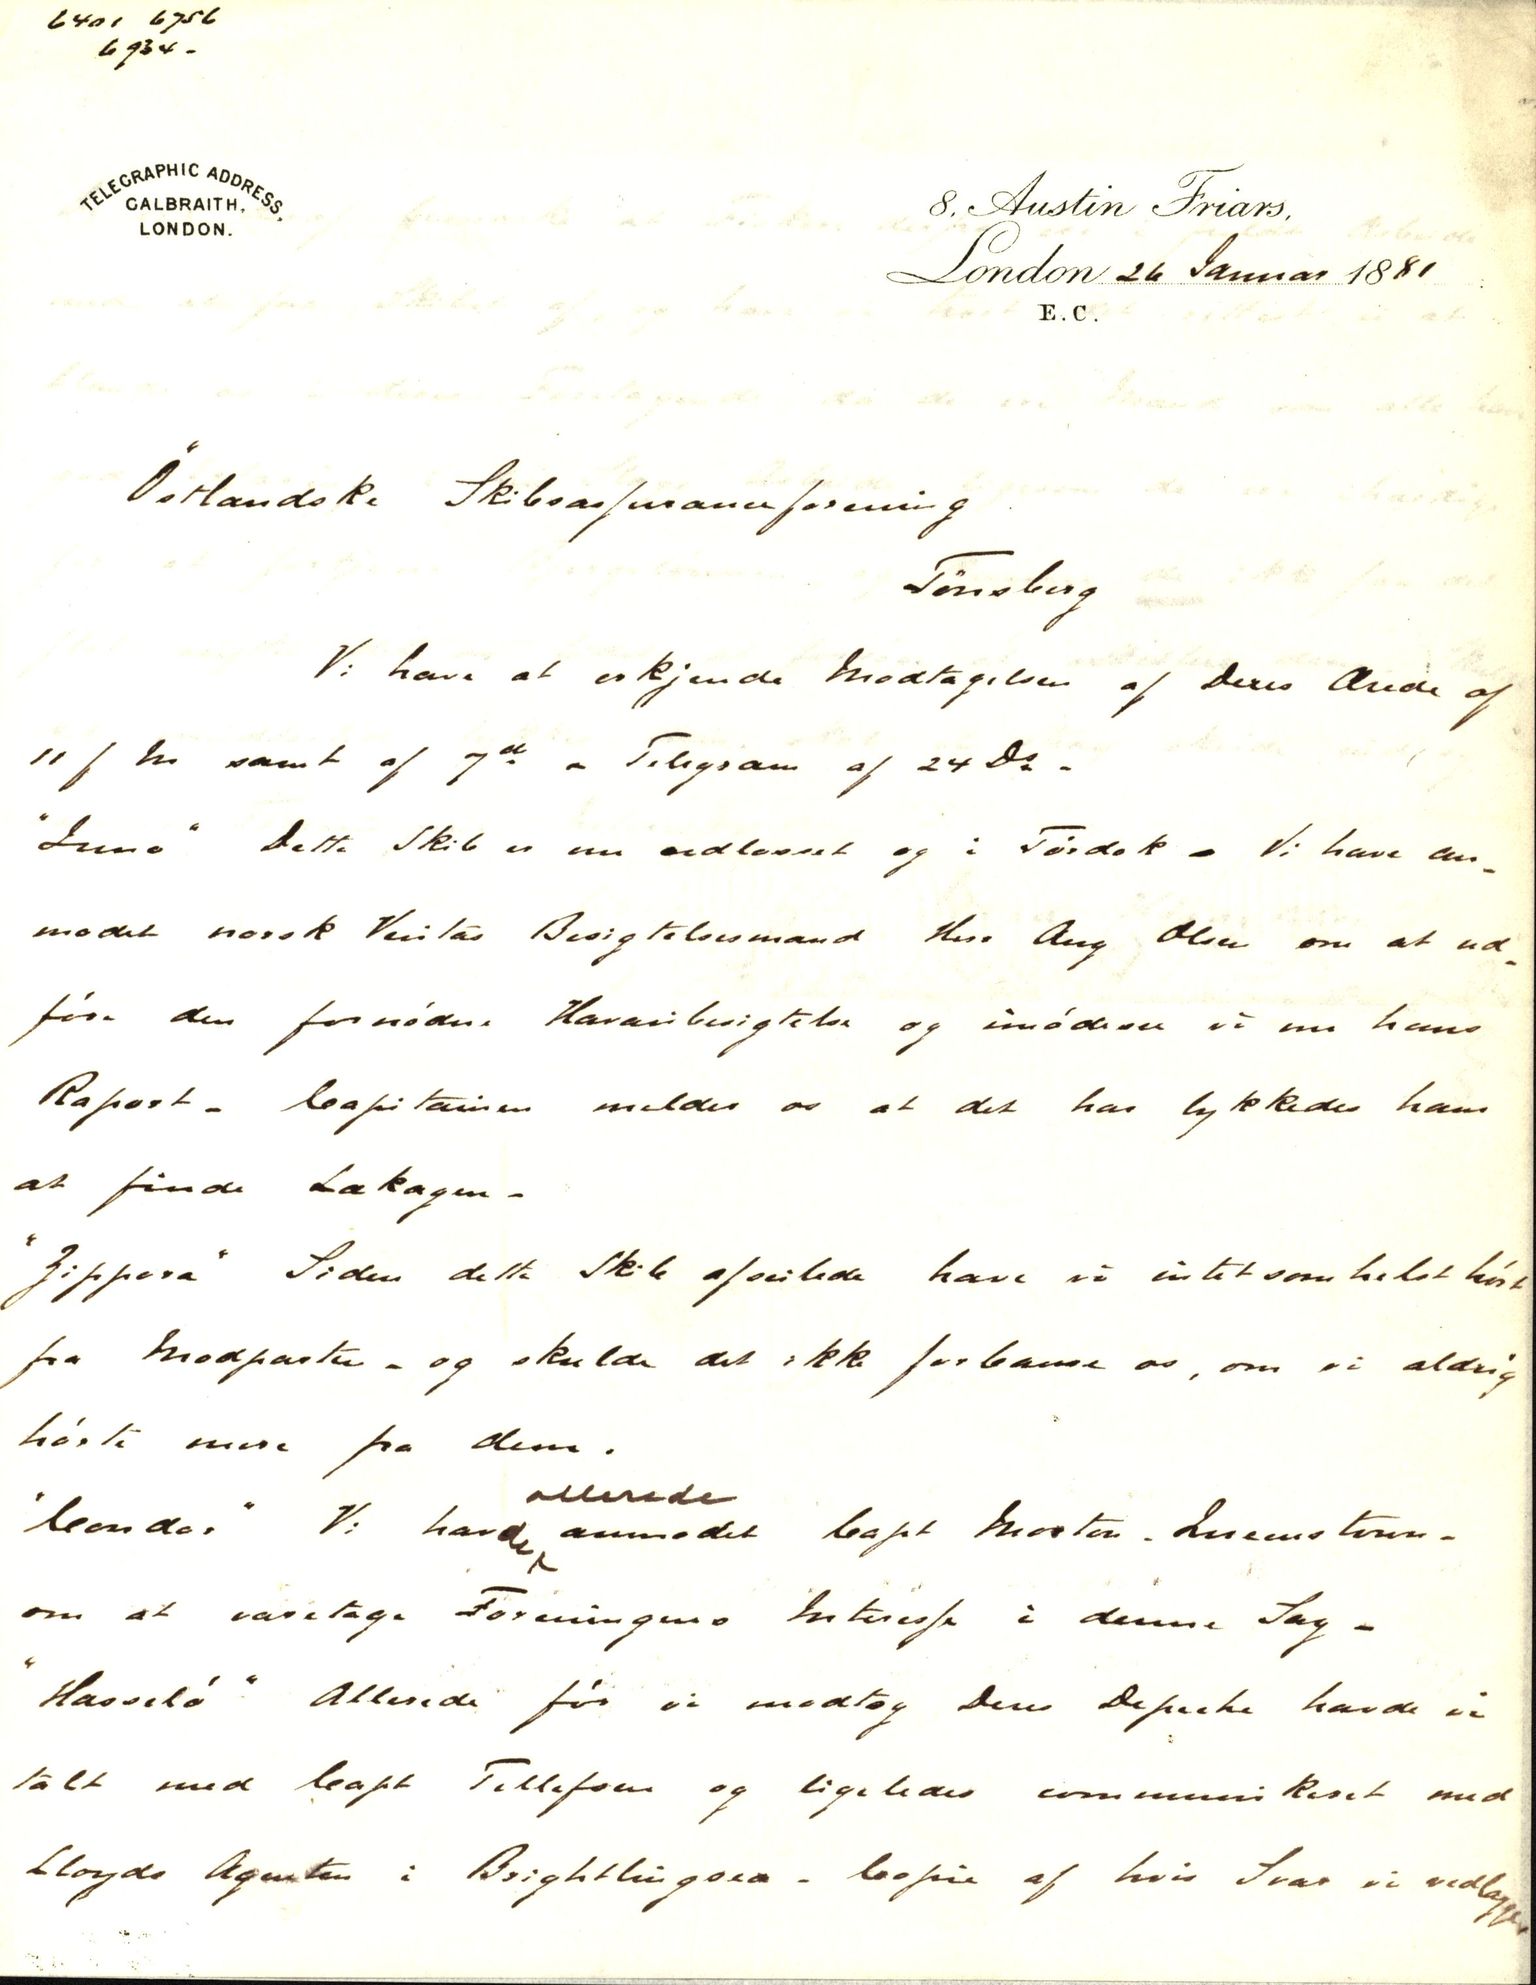 6401 6756
6934 -
TELEGRAPHIC ADDRESS,
GALBRAITH,
LONDON.
8, Austin Friars,
London 26 Januar 1881
E.C.
Östlandske Skibsassuranceforening
Tönsberg
Vi have at erkjende Modtagelsen af Deres Ærede af
11 f M samt af 7d. - Telegram af 24 Do -
"Juno" Dette Skib er nu udlosset og i Tørdok - Vi have an-
modet norsk Veritas Besigtelsesmand Herr Aug Olsen om at ud-
føre den fornødne Havaribesigtelse og imødese vi nu hans
Raport - Capitainen melder os at det har lykkedes ham
at finde Lækagen -
"Zippora" Siden dette Skib afseilede have vi intetsomhelst hørt
fra Modparten - og skulde det ikke forbause os, om vi aldrig
hørte mere fra dem.
allerede
"Condor" Vi havde anmodet Capt Morton - Queenstown -
om at varetage Foreningens Interesse i denne Sag -
"Hasselø" Allerede før vi modtog Deres Depeche havde vi
talt med Capt Tellefsen og ligeledes communikeret med
Lloyds Agenten i Brightlingsea - Copie af hvis Svar vi vedlægge